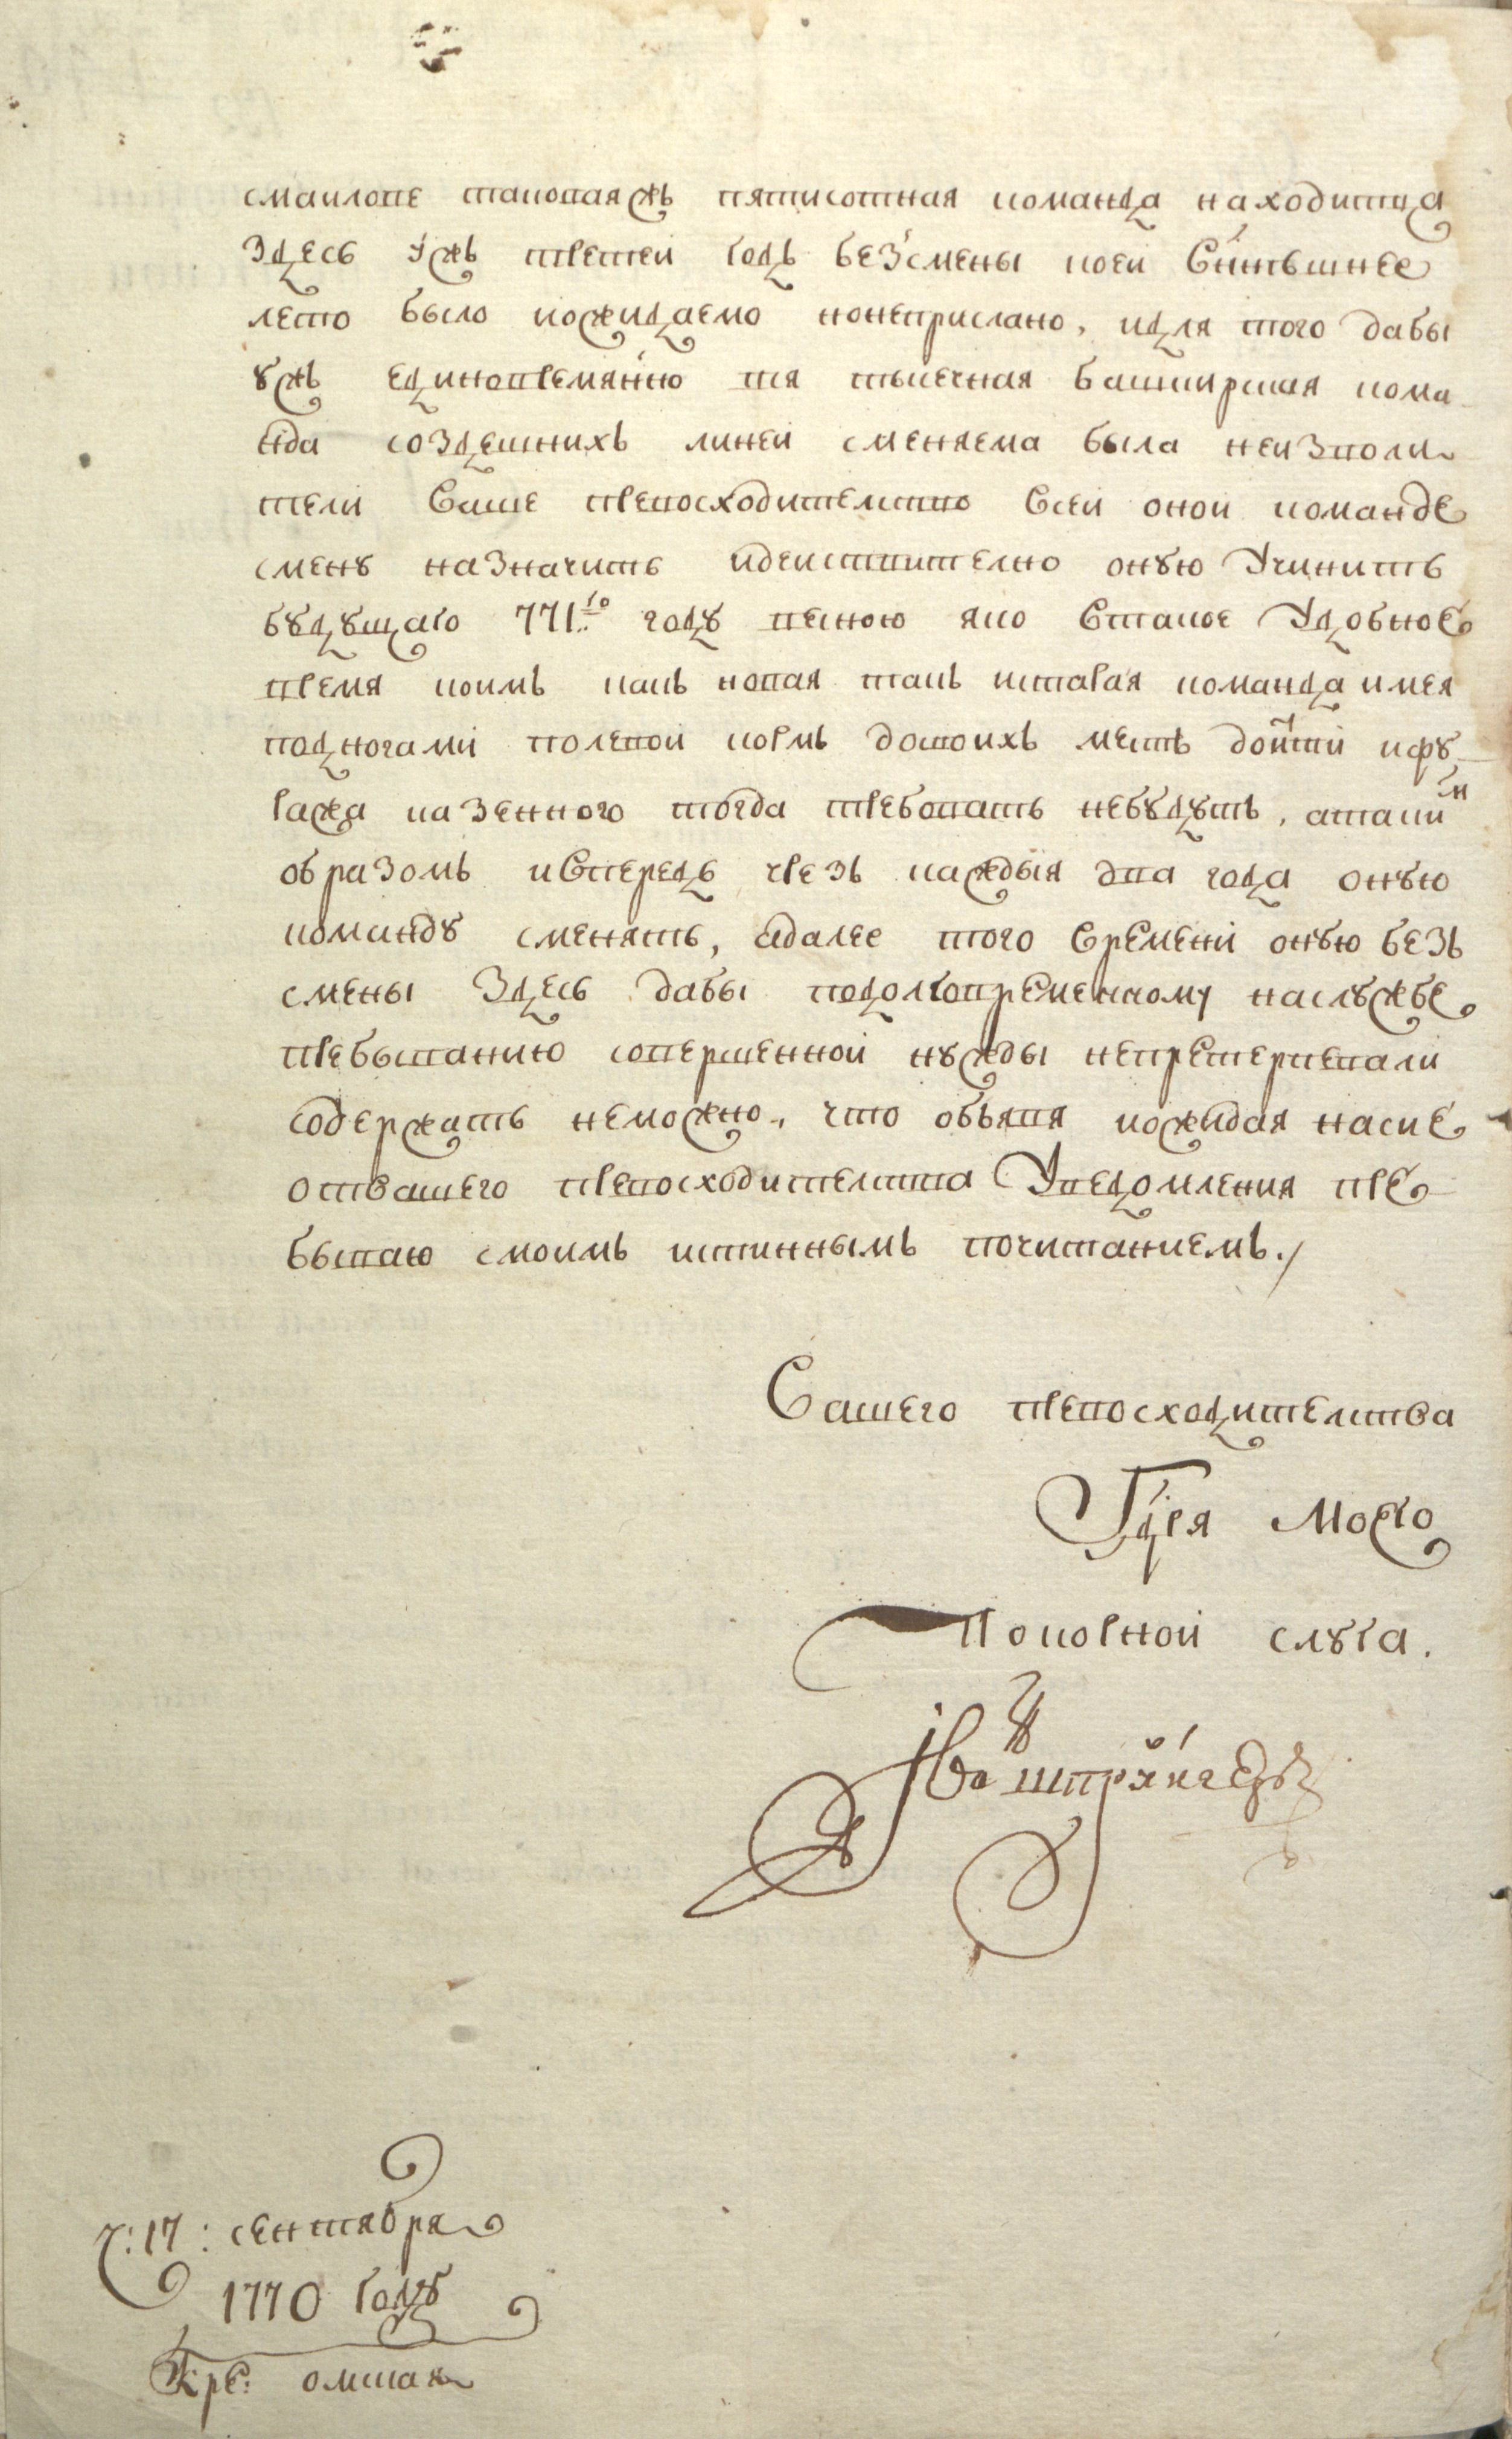 смаилове таковая жъ пятисотная команда находитца
здесь ужъ третей годъ безсмены коей внынешнее
лето было иожидаемо нонеприслано, идля того дабы
ужъ единовременно вся тысечная башкирская кома
нда создешнихъ линей сменяема была неизволи
тели ваше превосходителство всей оной команде
смену назначить идействително оную учинить
будущаго 771го году весною яко втакое удобное
время коимъ какъ новая такъ истарая команда имея
подногами полевой кормъ досвоихъ местъ дойтти ифу
ража казенного тогда требовать небудутъ, атакимъ
образомъ ивпередь чрезъ каждыя два года оную
команду сменять, адалее того времени оную безъ
смены здесь дабы подолговременному наслужбе
пребыванию совершенной нужды непретерпевали
содержать неможно, что объявя иожидая насие
отвашего превосходителства уведомления пре
бываю смоимъ истиннымъ почитаниемъ./
Вашего превосходителства
Гдря моего
Покорной слуга.
Iва шпрингеръ
ч: 17: сентября
1770 году
Кре: омская